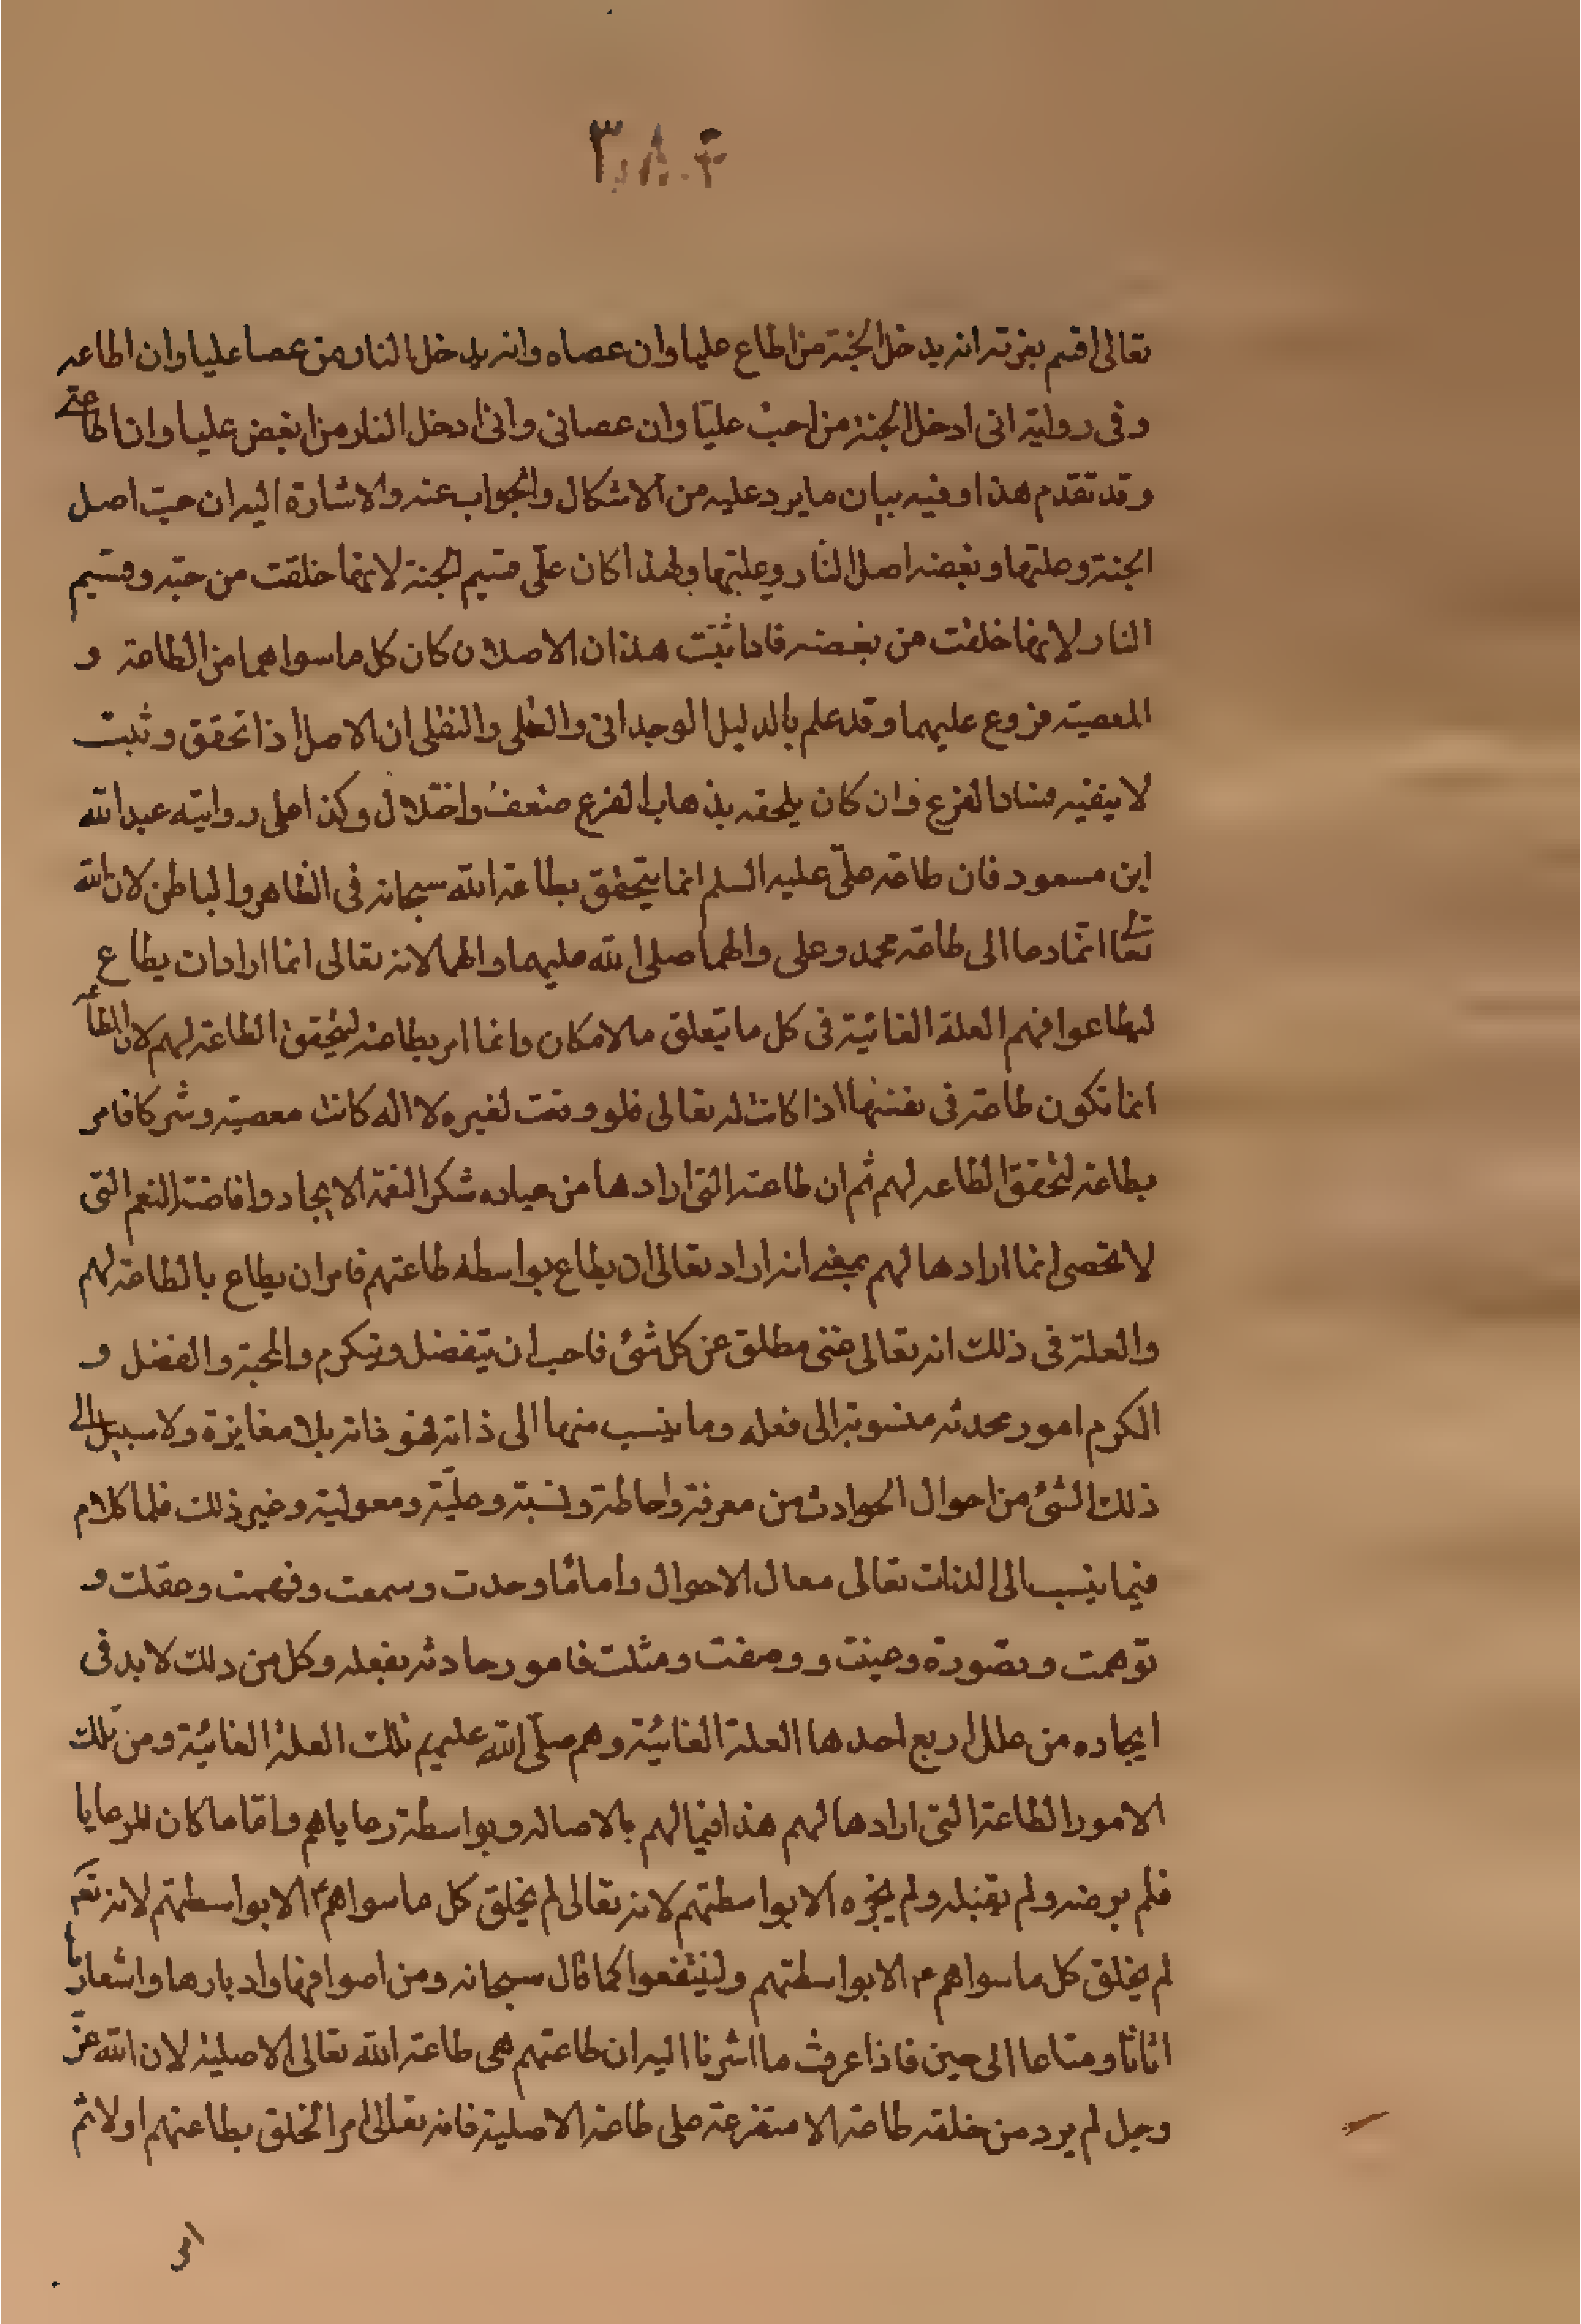 ٣٨٤
تعالى اقسم بعزته انه يدخل الجنة من اطاع عليا وان عصاه وانه يدخل النار من عصا عليا وان اطاعه
وفى رواية انى ادخل الجنة من احب عليّا وان عصانى وانى ادخل النار من ابغض عليا وان اطاعنى
وقد تقدم هذا وفيه بيان ما يرد عليه من الاشكال والجواب عنه والاشارة اليه ان حبّ اصل
الجنة وعلتها وبغضه اصل النّار وعلتها ولهذا كان علّى قسيم الجنة لانها خلقت من حبّه وقسيم
النار لانها خلقت من بغضه فاذا ثبّت هذان الاصلان كان كل ما سواهما من الطاعة و
المعصية فروع عليهما وقد علم بالدليل الوجدانى والعقلى والنقلى ان الاصل اذا تحقق وثبت
لا ينفيه فساد الفرع وان كان يلحقه بذهاب الفرع ضعف واختلال وكذا على رواية عبد الله
ابن مسعود فان طاعة علّى عليه السلم انما يتحقق بطاعة الله سبحانه فى الظاهر والباطن لان الله
تعالى انّما دعا الى طاعة محمد وعلى والهما صلى الله عليهما والهما لانه تعالى انما اراد ان يطاع
ليطاعوا فهم العلة الغائية فى كل ما يتعلق بالامكان وانما امر بطاعته ليتحقق الطاعة لهم لان الطاعة
انما تكون طاعة فى نفسها اذا كانت له تعالى فلو وقعت لغيره لا اله كانت معصية وشركا فامر
بطاعته لتحقق الطاعه لهم ثم ان طاعته التى ارادها من عباده شكر النعمة الايجاد وافاضته النعم التى
لا تحصى انما ارادها لهم بمعنى انه اراد تعالى ان يطاع بواسطه طاعتهم فامر ان يطاع بالطاعة لهم
والعلة فى ذلك انه تعالى غنى مطلق عن كل شئ فاحب ان يتفضل ويتكرم والمحبة والفضل و
الكرم امور محدثه منسوبة الى فعله وما ينسب منها الى ذاته فهو ذاته بلا مغايرة ولا سبيل الى
ذلك الشئ من احوال الحوادث من معرفة واحاطة ونسبة وعليّة ومعولية وغير ذلك فلما كلام
فيما ينسب الى الذات تعالى معال الاحوال واما ما وحدت وسمعت وفهمت وعقلت و
توهمت وتصورة وعينت ووصفت ومثلت فامور حادثه بفعله وكل من ذلك لا بد فى
ايجاده من علل اربع احدها العلة الغائيّة وهم صلّى الله عليهم تلك العلة الغائية ومن تلك
الامور الطاعة التى ارادها لهم هذا فيما لهم بالاصاله وبواسطة رعاياهم وامّا ما كان للرعايا
فلم يرضه ولم يقبله ولم يجزه الا بواسطتهم لانه تعالى لم يخلق كل ما سواهم الا بواسطتهم لانه تعالى
لم يخلق كل ما سواهم م الا بواسطتهم ولينتفعوا كما قال سبحانه ومن اصوافها واوبارها واشعارها
اثاثا ومتاعا الى حين فاذا عرفت ما اشرنا اليه ان طاعتهم هى طاعة الله تعالى الاصلية لان الله عزّ
وجل لم يرد من خلقه طاعة الا متفرعة على طاعة الاصلية فانه تعالى امر الخلق بطاعتهم اولا ثم